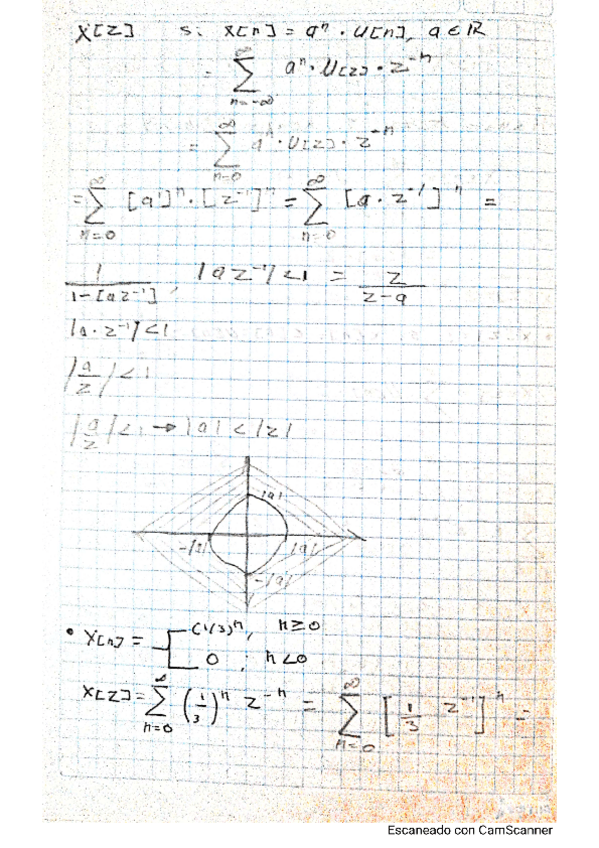 X[z] si x[n] = a^n · u[n], a ∈ ℝ
= ∑_{n=-∞}^{∞} a^n · u[z] · z^{-n}
= ∑_{n=0}^{∞} a^n · u[z] · z^{-n}
= ∑_{n=0}^{∞} [a^1]^n · [z^{-1}]^n = ∑_{n=0}^{∞} [a · z^{-1}]^n =
1/(1-[az^{-1}]), |az^{-1}| < 1 = z/(z-a)
|a · z^{-1}| < 1
|a/z| < 1
|a/z| < 1 → |a| < |z|
|a|
-|a| |a|
-|a|
• X[n] = { (1/3)^n, n ≥ 0
0 ; n < 0
X[z] = ∑_{n=0}^{∞} (1/3)^n z^{-n} = ∑_{n=0}^{∞} [1/3 z^{-1}]^n =
Escaneado con CamScanner